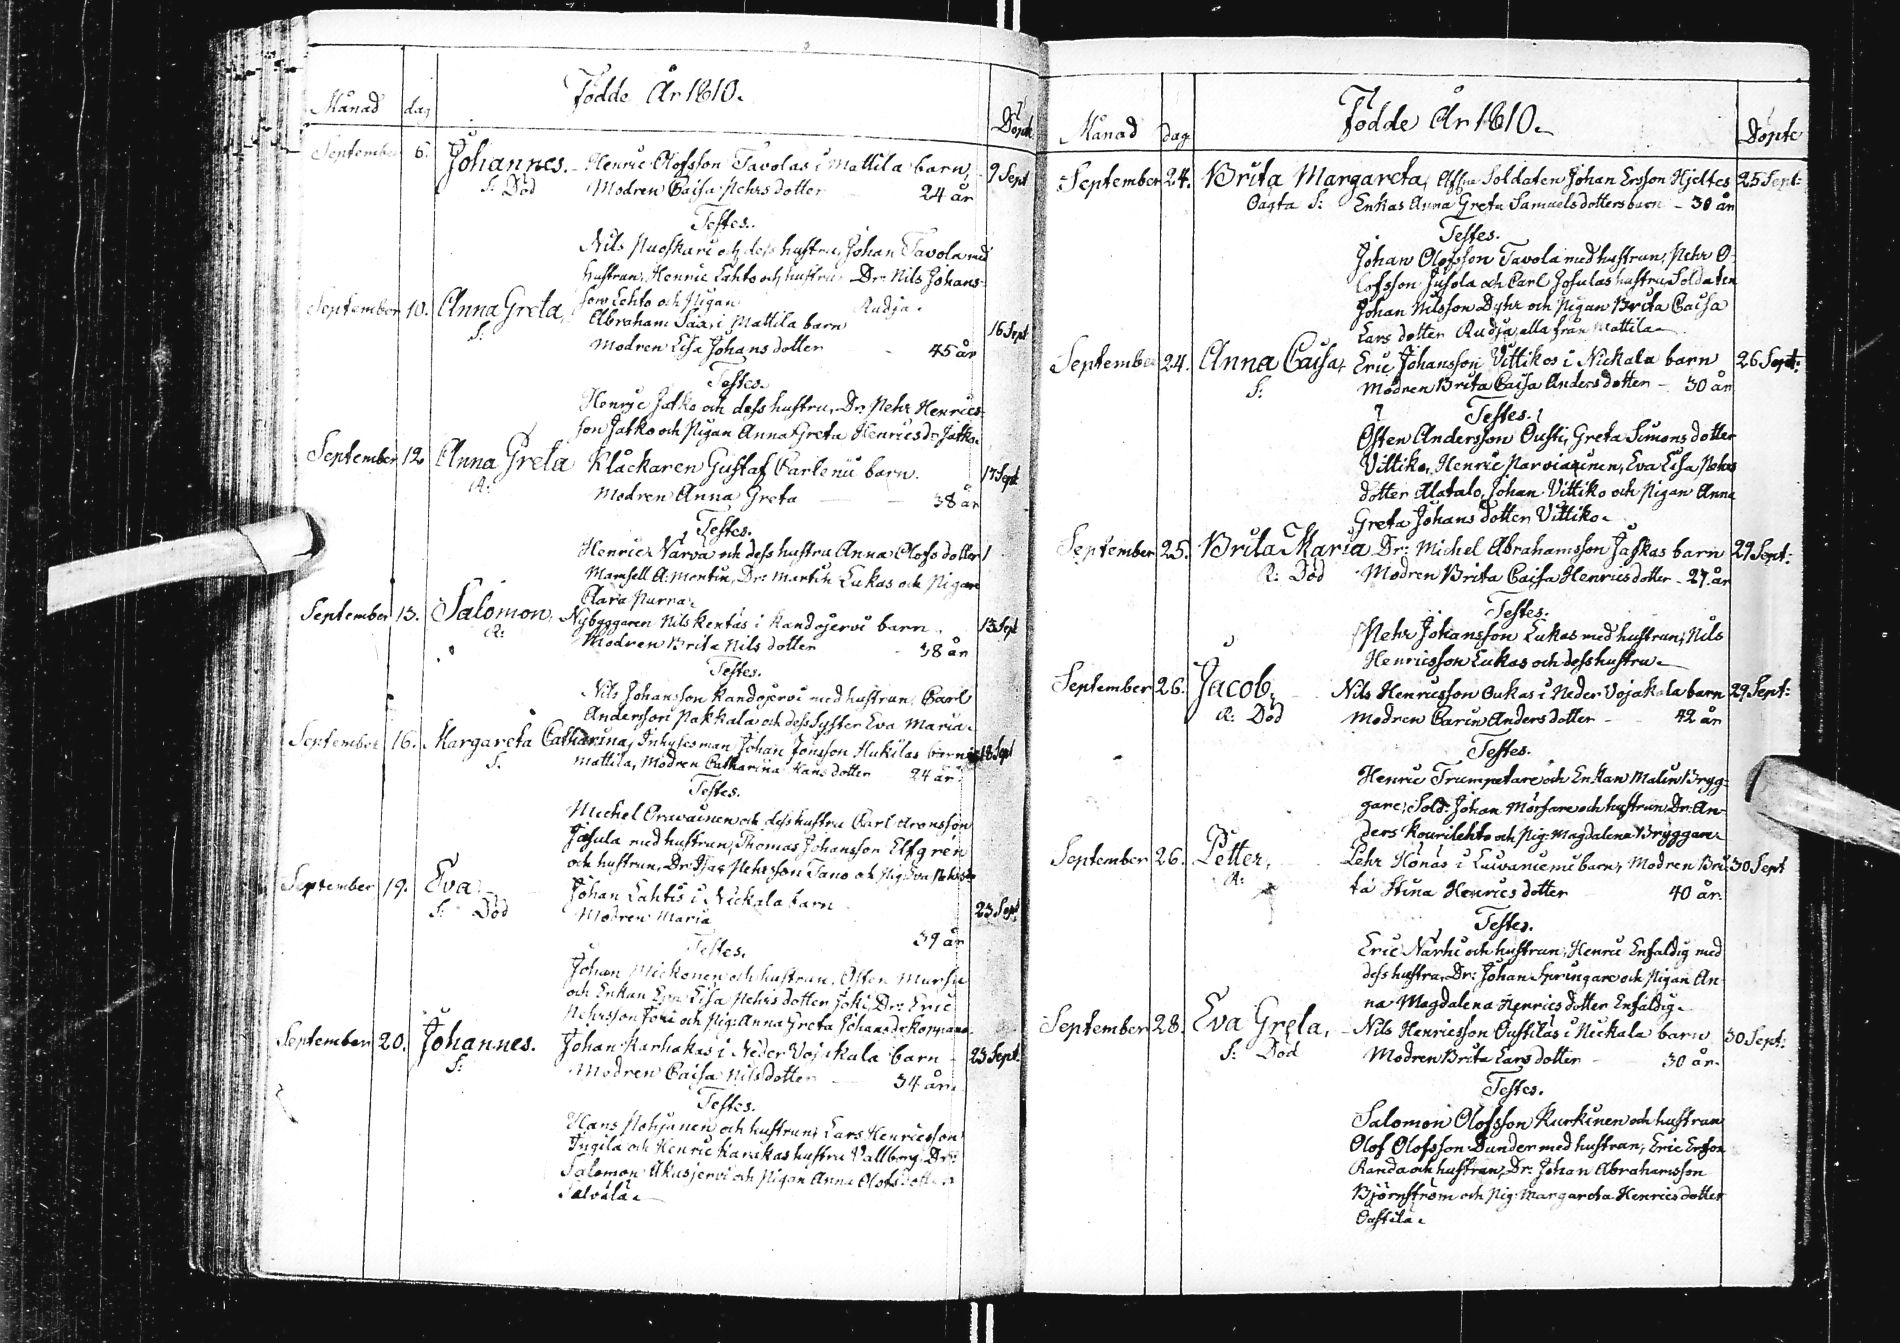 Födde År 1810.
Månad dag Döpte
September 6. Johannes. Henric Olofsson Tavolas i Mattila barn, 9 Sept
S: Död Modren Caisa Pehrs dotter 24 år
Testes.
Nils och dess hustru, Johan Tavola med
hustrun, Henric Lahto och hustru Dr: Nils Johans-
son Lehto och Pigan Rudja.
September 10. Anna Greta, Abraham i Mattila barn 16 Sept
S: Modren Lisa Johans dotter 45 år
Testes.
Henric Jatko och dess hustru, Dr: Pehr Henrics-
son Jatko och Pigan Anna Greta Henricsdr Jatko.
September 12 Anna Greta Klåckaren Gustaf barn. 17 Sept
R: Modren Anna Greta 38 år
Testes.
Henric Varva och dess hustru Anna Olofs dotter
Mamsell A: Montin, Dr: Martin Lukas och Pigan
Clara Purra.
September 13. Salomon, Nybyggaren Nils Kentäs i barn 13 Sept
R: Modren Brita Nils dotter 38 år
Testes.
Nils Johansson med hustrun, Carl
Andersson Pakkala och dess Syster Eva Maria.
September 16. Margareta Catharina, Inhysesman Johan Jönsson Hukilas barn i 18 Sept
S: Mattila, Modren Catharina Hans dotter 24 år
Testes.
Michel Oravainen och dess hustru Carl Aronsson
Josula med hustrun, Thomas Johansson Elfgren
och hustrun, Dr: Pehrsson Tano och Pig: Eva
September 19. Eva Johan Lahtis i Nickala barn 23 Sept.
S: Död Modren Maria 39 år
Testes.
Johan Mickonen och hustrun, Östen Mursu
och Enkan Eva Lisa Pehrs dotter Joki, Dr: Eric
Pehrsson och Pig: Anna Greta Johansdr Koppana
September 20. Johannes. Johan Karhakas i Neder Vojakala barn 23 Sept
S: Modren Caisa Nils dotter 34 år.
Testes.
Hans Pohjanen och hustrun, Lars Henricsson
och Henric Karakas hustru Vallberg Dr:
Salomon Akusjervi och Pigan Anna Olofs dotter

Födde År 1810.
Månad dag Döpte
September 24. Brita Margareta, Soldaten Johan Ersson Hjeltes 25 Sept:
Oägta S: Enkas Anna Greta Samuels dotters barn 30 år
Testes.
Johan Olofsson Tavola med hustrun, Pehr O-
lofsson Jusola och Carl Josulas hustru Soldaten
Johan Nilsson och Pigan Brita Caisa
Lars dotter Rudja, alla från Mattila
September 24. Anna Caisa, Eric Johansson Vittikos i Nickala barn 26 Sept:
S: Modren Brita Caisa Anders dotter 30 år
Testes.
Östen Andersson Ousti, Greta Simons dotter
Vittiko, Henric Parviainen, Eva Lisa Pehrs
dotter Alatalo, Johan Vittiko och Pigan Anna
Greta Johans dotter Vittiko.
September 25. Brita Maria Dr: Michel Abrahamsson Jaskas barn 29 Sept:
R: Död Modren Brita Caisa Henrics dotter 27 år
Testes.
Pehr Johansson Lukas med hustrun, Nils
Henricsson Lukas och dess hustru.
September 26. Jacob, Nils Henricsson Oukas i Neder Vojakala barn 29 Sept:
R: Död Modren Carin Anders dotter 42 år
Testes.
Henric Trumpetare och Enkan Malin Brygg-
gare; Sold: Johan Mörsare och hustrun, Dr: An-
ders Kourilehto och Pig: Magdalena Bryggare.
September 26. Petter, Pehr Hönäs i Laivaniemi barn, Modren Bri- 30 Sept
R: ta Stina Henrics dotter 40 år.
Testes.
Eric Närhi och hustrun, Henric Enfaldig med
dess hustru, Dr: Johan Springare och Pigan An-
na Magdalena Henrics dotter Enfaldig.
September 28. Eva Greta, Nils Henricsson Oustilas i Nickala barn 30 Sept:
S: Död Modren Brita Lars dotter 30 år.
Testes.
Salomon Olofsson Kurkinen och hustrun
Olof Olofsson Dunder med hustrun, Eric Ersson
Randa och hustrun, Dr: Johan Abrahamsson
Björnström och Pig: Margareta Henrics dotter
Oustila.